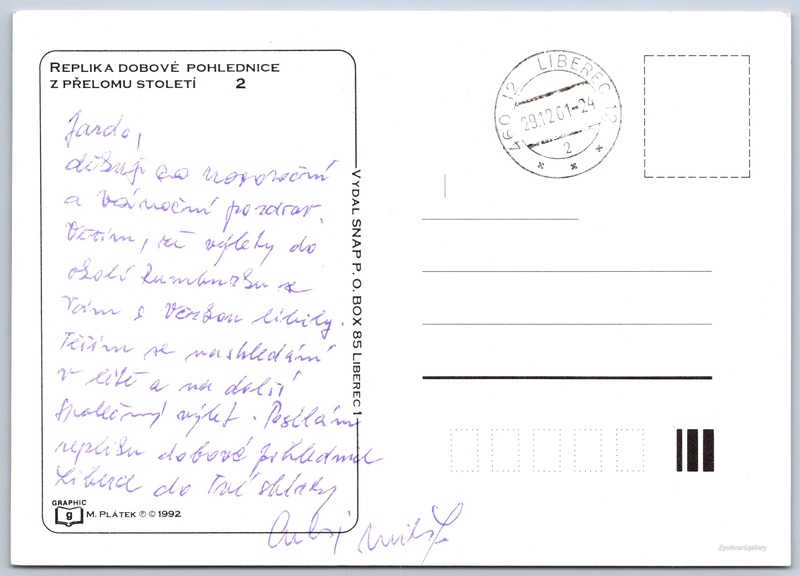 REPLIKA DOBOVÉ POHLEDNICE
Z PŘELOMU STOLETÍ 2
Jardo,
děkuji za novoroční
a Vánoční pozdrav.
Věřím, že výlety do
okolí Rumburku se
Vám s Věrkou líbily.
Těším se nashledání
v létě a na další
společný výlet. Posílám
repliku dobové pohlednice
Liberce do Tvé sbírky
GRAPHIC
g M. PLÁTEK ℗ © 1992
VYDAL SNAP P. O. BOX 85 LIBEREC 1
460 12 LIBEREC 12
29.12.01-24
2
@postcard.gallery